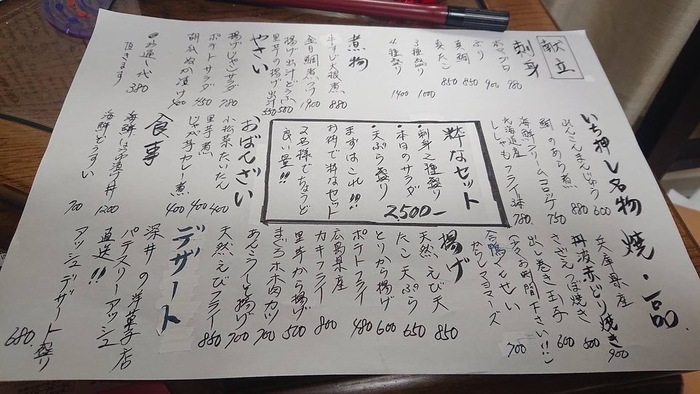 献立
刺身
本マグロ 980
ぶり 900
真鯛 850
真たこ 850
3種盛り 1000
4種盛り 1400
煮物
牛すじ大根煮 880
金目鯛煮つけ 1900
揚げ出汁どうふ 500
里芋の揚げ出汁 550
やさい
揚げじゃがサラダ 780
ポテトサラダ 450
胡瓜ぬか漬け 400
お通し代 380
頂きます
いち押し名物
れんこんまんじゅう 600
鯛のあら煮 880
海鮮クリームコロッケ 750
北海道産
ししゃもフライ 3本 780
粋なセット
・刺身2種盛り
・本日のサラダ
・天ぷら盛り
2500-
まずはこれ!!
お得で粋なセット
2名様でちょうど
良い量!!
おばんざい
小松菜たいたん 400
里芋煮 400
じゃが芋カレー煮 400
食事
海鮮ばらちらし丼 1200
海鮮どうすい 700
焼・一品
兵庫県産
丹波赤どり焼き 900
さざえつぼ焼き 600
出し巻き玉子 600
(少々お時間下さい!!)
合鴨くんせい
からしマヨネーズ 700
揚げ
天然えび天 850
たこ天ぷら 650
とりから揚げ 600
ポテトフライ 480
広島県産
カキフライ 800
里芋から揚げ 500
まぐろホホ肉カツ 700
あんこうから揚げ 700
天然えびフライ 850
デザート
深井の洋菓子店
パティスリーアッシュ
直送!!
アッシュデザート盛り 680